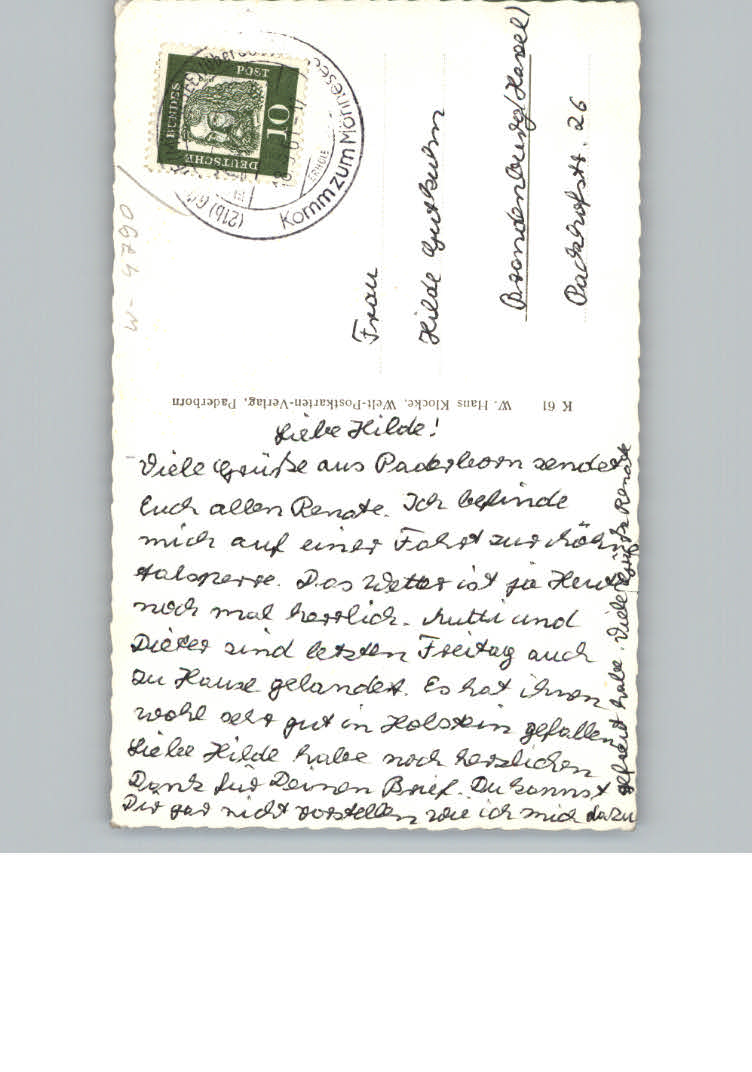 Liebe Hilde!
Viele Grüße aus Paderborn sendet
Euch allen Renate. Ich befinde
mich auf einer Fahrt zur Möhn
talsperre. Das Wetter ist ja Heute
noch mal herrlich. Mutti und
Dieter sind letzten Freitag auch
zu Hause gelandet. Es hat ihnen
wohl sehr gut in Holstein gefallen
Liebe Hilde habe noch herzlichen
Dank für Deinen Brief. Du kannst
Dir gar nicht vorstellen wie ich mich dazu
gefreut habe. Viele Grüße Renate
Frau
Hilde
Brandenburg (Havel)
Packhofstr. 26
K 61 W. Hans Klocke, Welt-Postkarten-Verlag, Paderborn
DEUTSCHE BUNDES POST
10
(21b)
Komm zum Möhnesee
W-4790